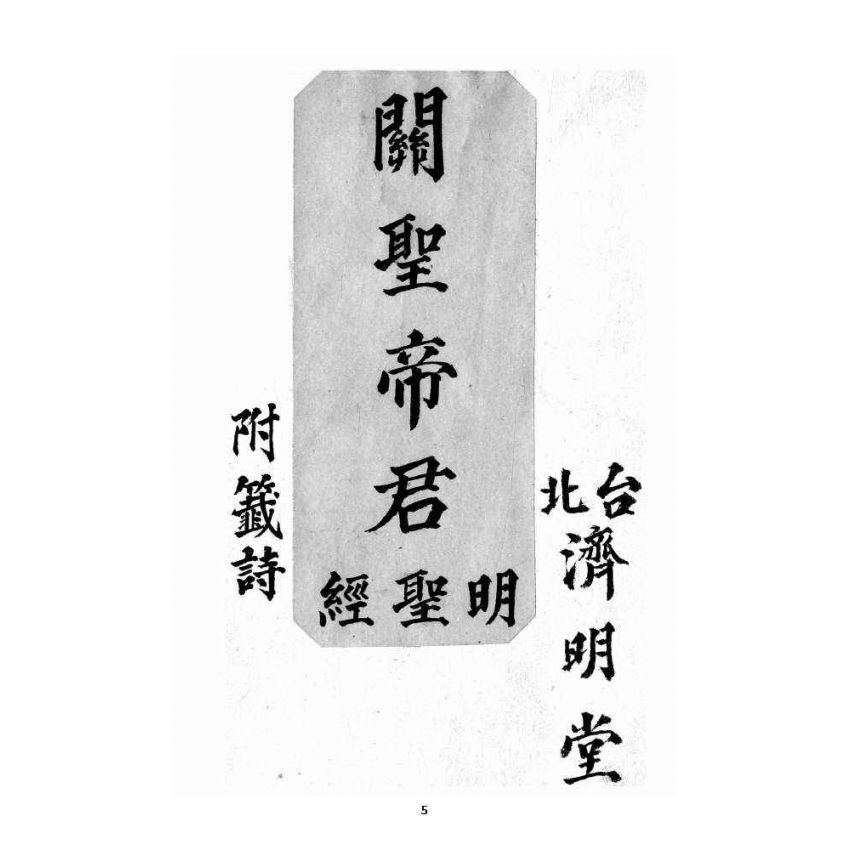 台北
濟明堂
關聖帝君
明聖經
附籤詩
5